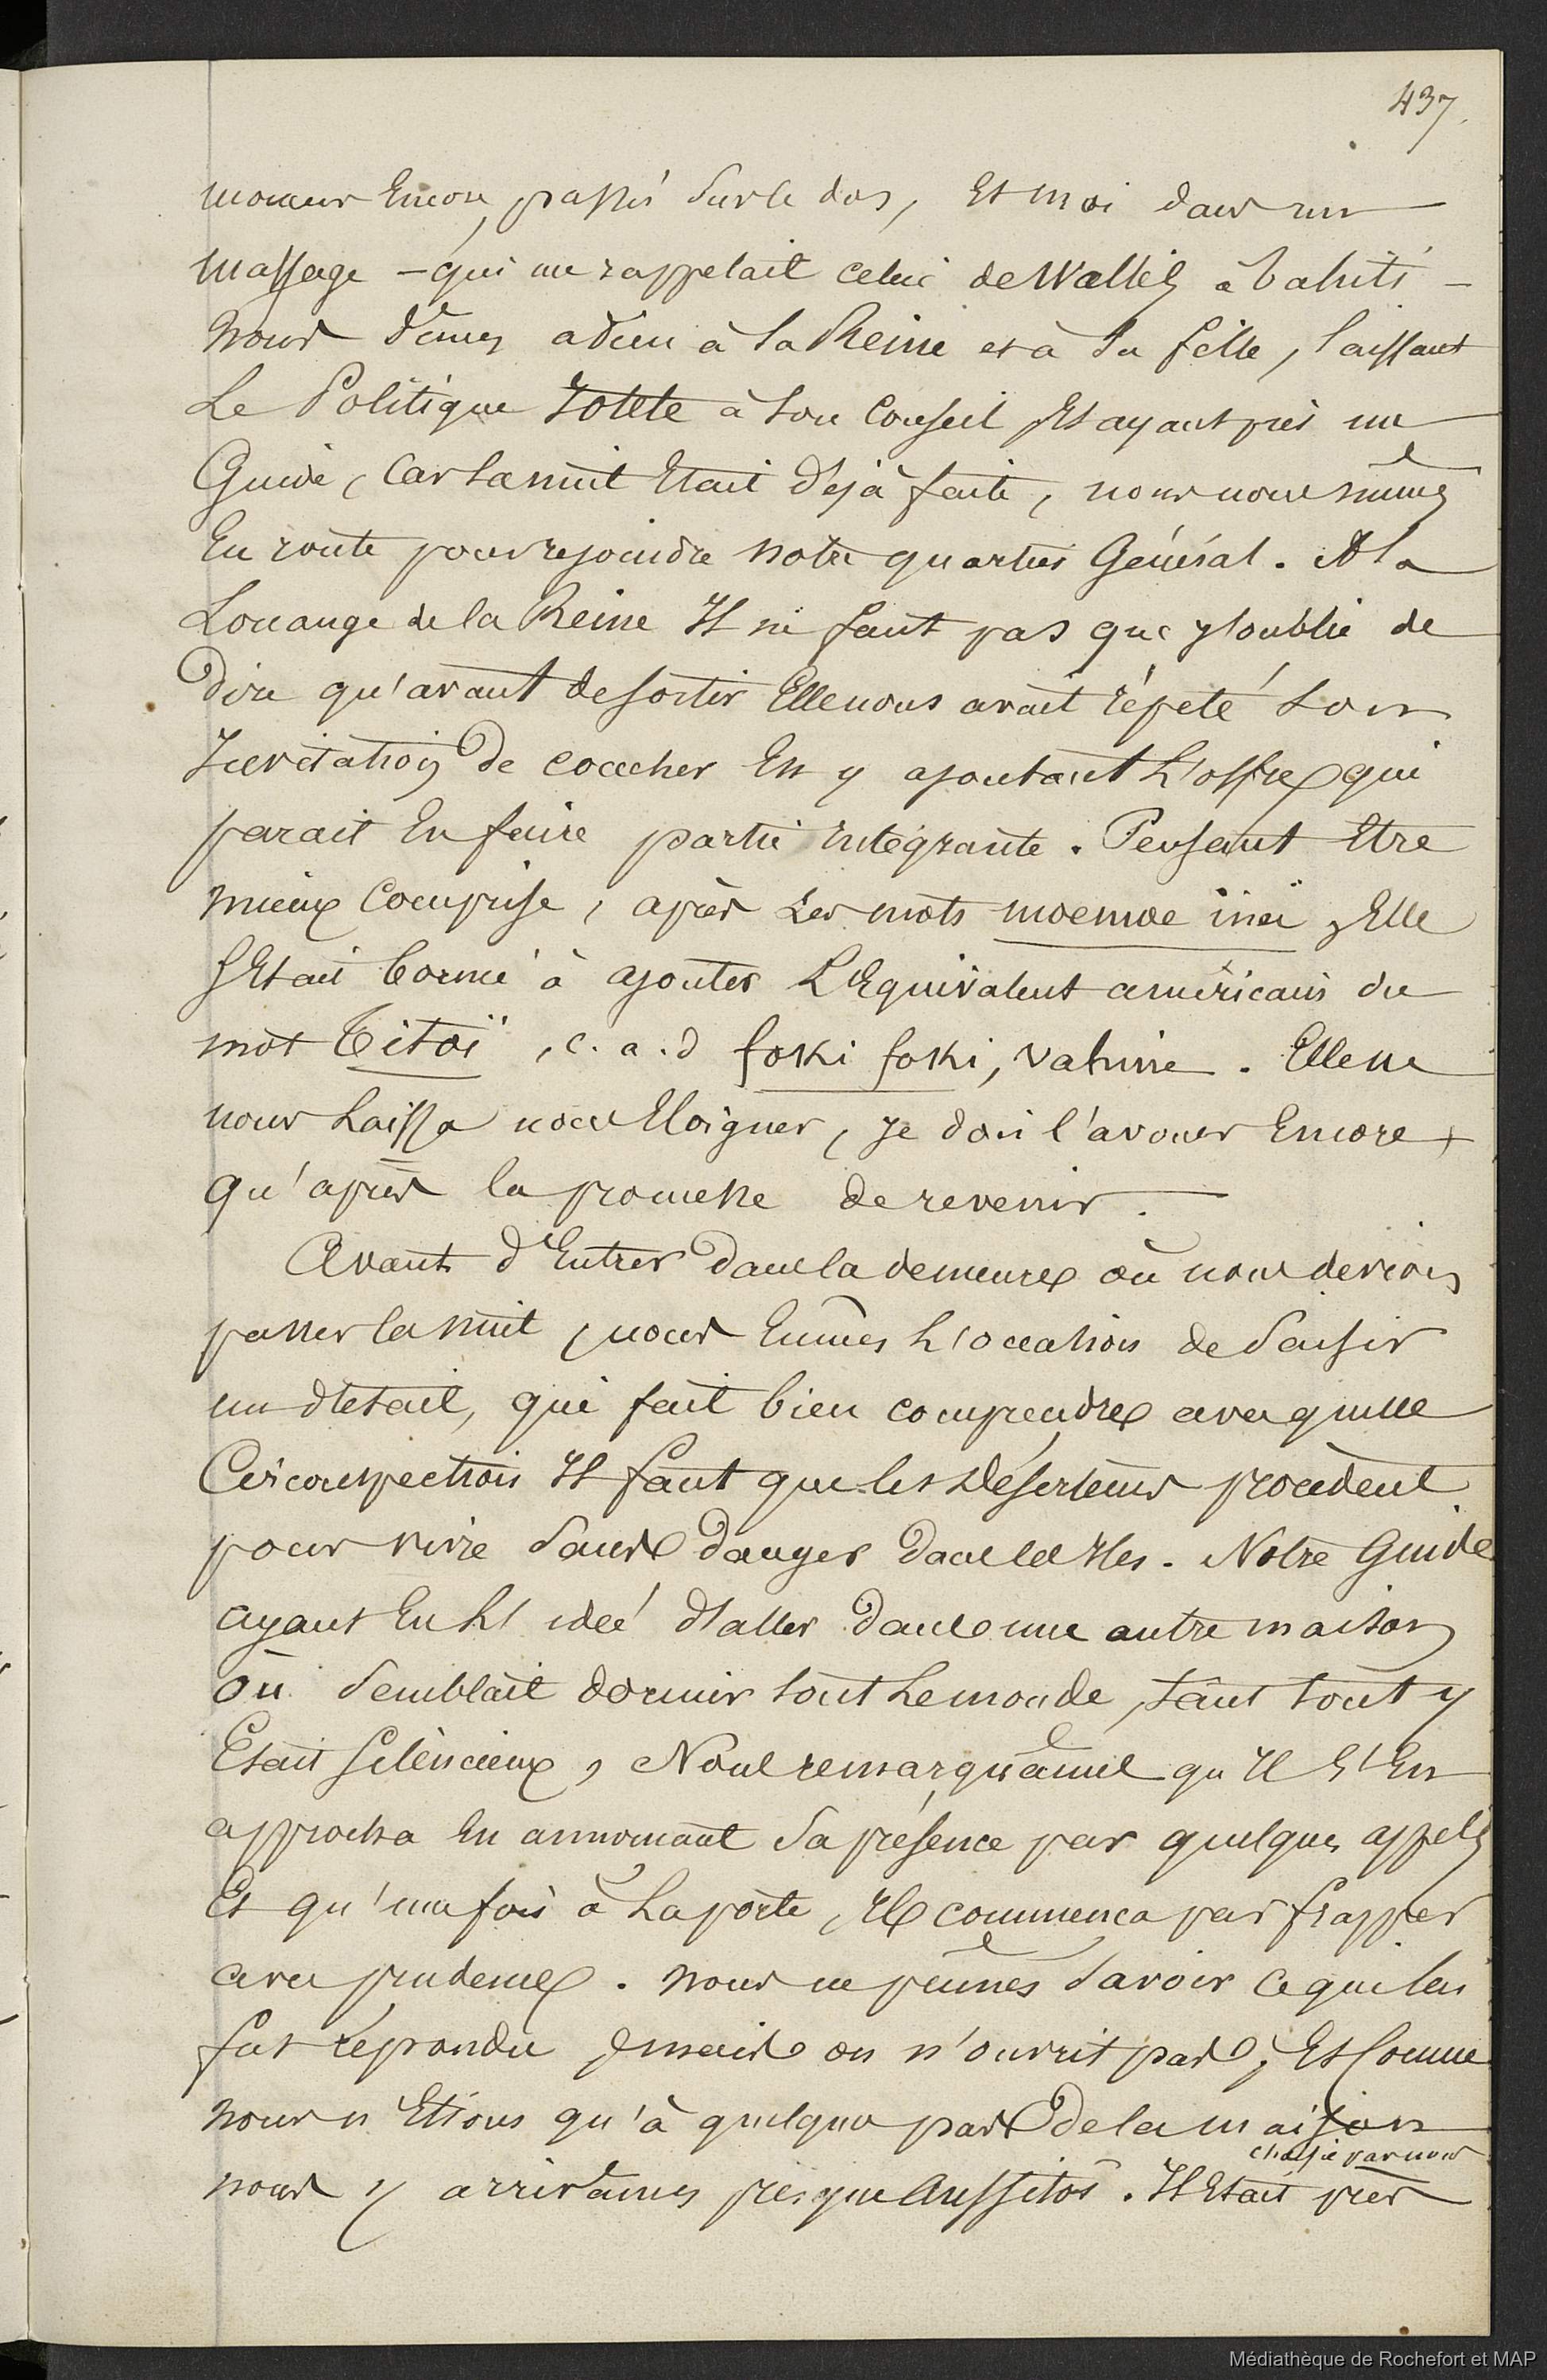 437.
moment Encore, passés sur le dos, Et moi dans un
massage – qui me rappelait celui de Wallis à Tahiti –
nous dîmes adieu à la Reine et à sa fille, laissant
Le Politique Iotete à son Conseil Et ayant pris un
Guide, Car la nuit Etait déjà faite, nous nous mîmes
En route pour rejoindre notre quartier Général. A la
Louange de la Reine Il ne faut pas que j'oublie de
Dire qu'avant de sortir Elle nous avait répeté son
Invitation de coucher En y ajoutant L'offre qui
parait En faire partie intégrante. Pensant Etre
mieux Comprise, après Les mots moemoe inei, Elle
s'Etait bornée à ajouter L'Equivalent américain du
mot Titoï, c. a. d foki foki, vahine. Elle ne
nous Laissa nous Eloigner, je dois l'avouer Encore
qu'après la promesse de revenir.
Avant d'Entrer dans la demeure où nous devions
passer la nuit, nous Eûmes L'occasion de Saisir
un détail, qui fait bien comprendre avec quelle
Circonspection Il faut que les Déserteurs procèdent
pour vivre Sans Danger Dans les Iles. Notre Guide
ayant Eu L'idée d'aller Dans une autre maison
où Semblait dormir tout Le monde, tant tout y
Etait Silencieux, Nous remarquâmes qu'Il s'En
approcha En annoncant Sa présence par quelques appels
Et qu'une fois à La porte, Il commenca par frapper
avec prudence. Nous ne pûmes Savoir Ce qui lui
fut répondu, mais on n'ouvrit pas, Et Comme
nous n'Etions qu'à quelques pas de la maison
choisie par nous
nous y arrivâmes presque Aussitôt. Il Etait près
Médiathèque de Rochefort et MAP